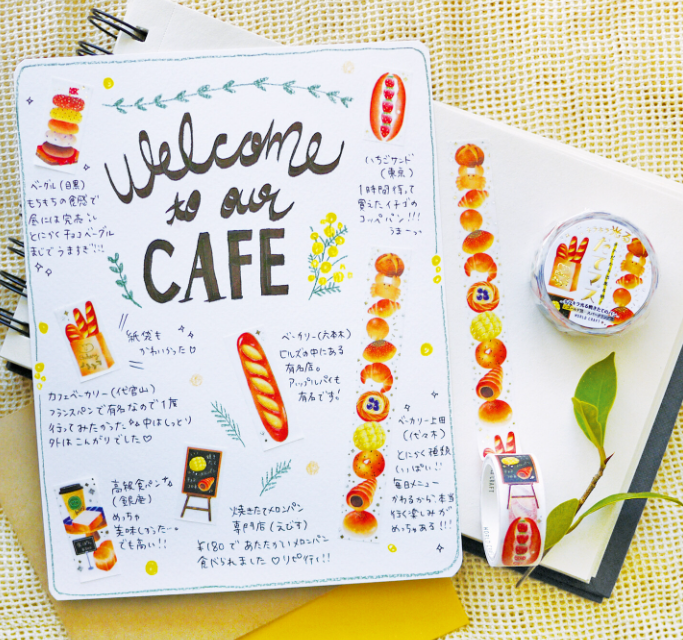 welcome
to our
CAFE
ベーグル(目黒)
もちもちの食感で
昼には完売
とにかくチョコベーグル
まじでうますぎ!!!
いちごサンド
(東京)
1時間待って
買えたイチゴの
コッペパン!!!
うまーっ
紙袋も
かわいかった♡
ベーカリー(六本木)
ヒルズの中にある
有名店。
アップルパイも
有名です。
カフェベーカリー(代官山)
フランスパンで有名なので1度
行ってみたかった 中はしっとり
外はこんがりでした♡
ベーカリー上田
(代々木)
とにかく種類
いっぱい!!
毎日メニュー
かわるから本当
行く楽しみが
めっちゃある!!!
高級食パン
(銀座)
めっちゃ
美味しかった…。
でも高い!!
焼きたてメロンパン
専門店(えびす)
¥180であたたかいメロンパン
食べられました♡リピ行く!!